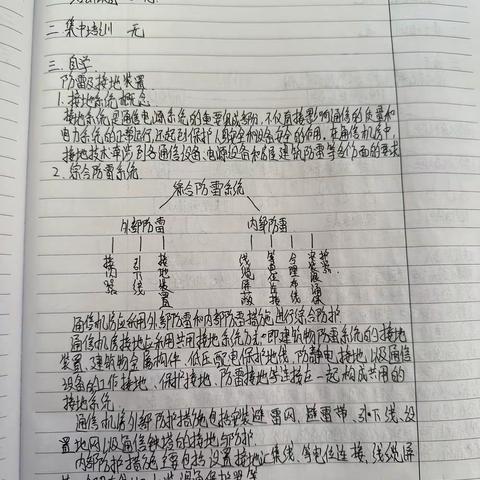 二. 集中培训 无
三. 自学.
防雷及接地装置
1. 接地系统概念
接地系统是通信电源系统的重要组成部分,不仅直接影响通信的质量和
电力系统的正常运行,还起到保护人身安全和设备安全的作用。在通信机房中,
接地技术牵涉到各通信设备、电源设备和房屋建筑防雷等全方面的要求
2. 综合防雷系统
综合防雷系统
外部防雷 内部防雷
接闪器 引下线 接地装置 线缆屏蔽 等电位连接 合理布线 安装浪涌保护器
通信机房应采用外部防雷和内部防雷措施进行综合防护
通信机房接地应采用共用接地系统方式。即建筑物防雷系统的接地
装置、建筑物金属构件、低压配电保护地线、防静电接地以及通信
设备的工作接地、保护接地、防雷接地等连接在一起构成共用的
接地系统
通信机房外部防护措施包括安装避雷网、避雷带、引下线、设
置地网以及通信铁塔的接地与防护.
内部防护措施主要包括设置接地汇集线、等电位连接、线缆屏